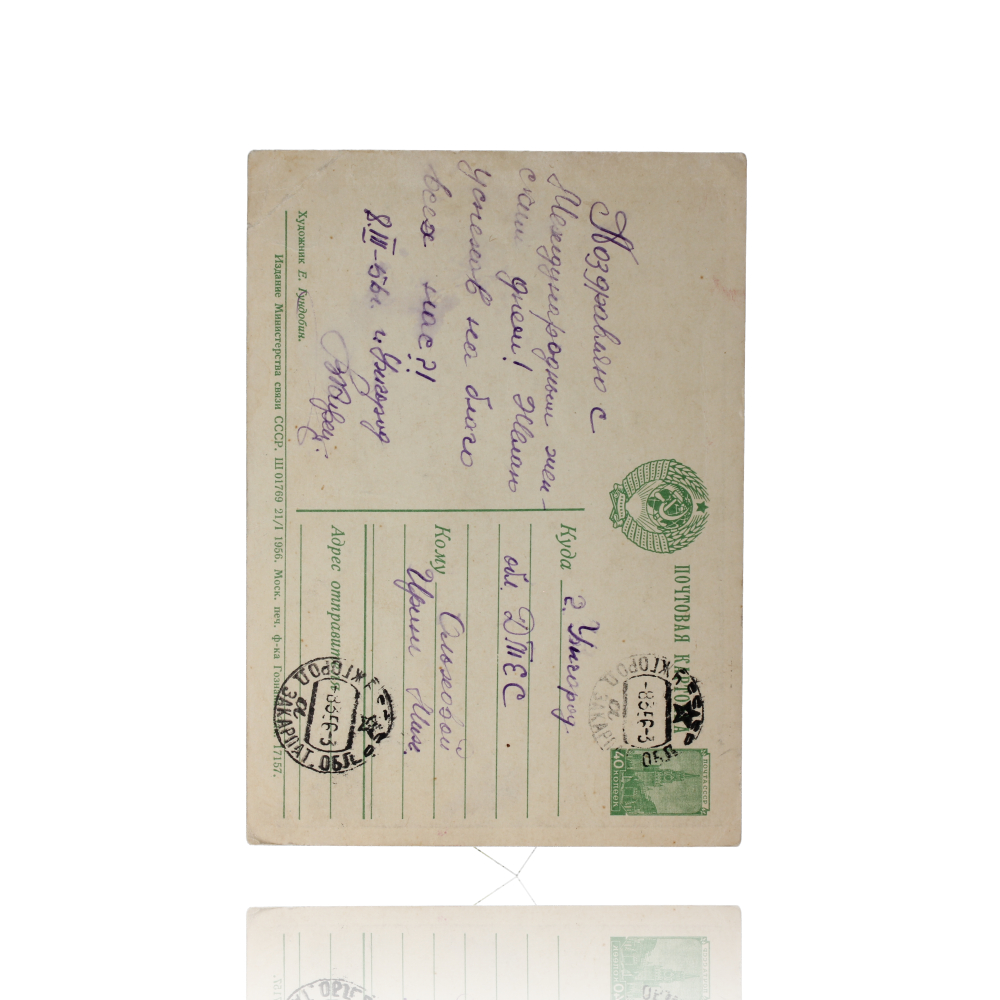 ПОЧТОВАЯ КАРТОЧКА
МОСКВА СССР
40 КОПЕЕК
Поздравляю с
Международным жен-
ским днем! Желаю
успехов на благо
всех нас?!
8.III-56г. г. Ужгород
Куда г. Ужгород.
обл. ДТЕС
Кому Ольховой
Ирине Мих.
Адрес отправителя
УЖГОРОД ЗАКАРПАТ. ОБЛ.
-8356-3
а
УЖГОРОД ЗАКАРПАТ. ОБЛ.
-8356-3
а
Художник Е. Гундобин.
Издание Министерства связи СССР. Ш 01769 21/I 1956. Моск. печ. ф-ка Гознака. 17157.